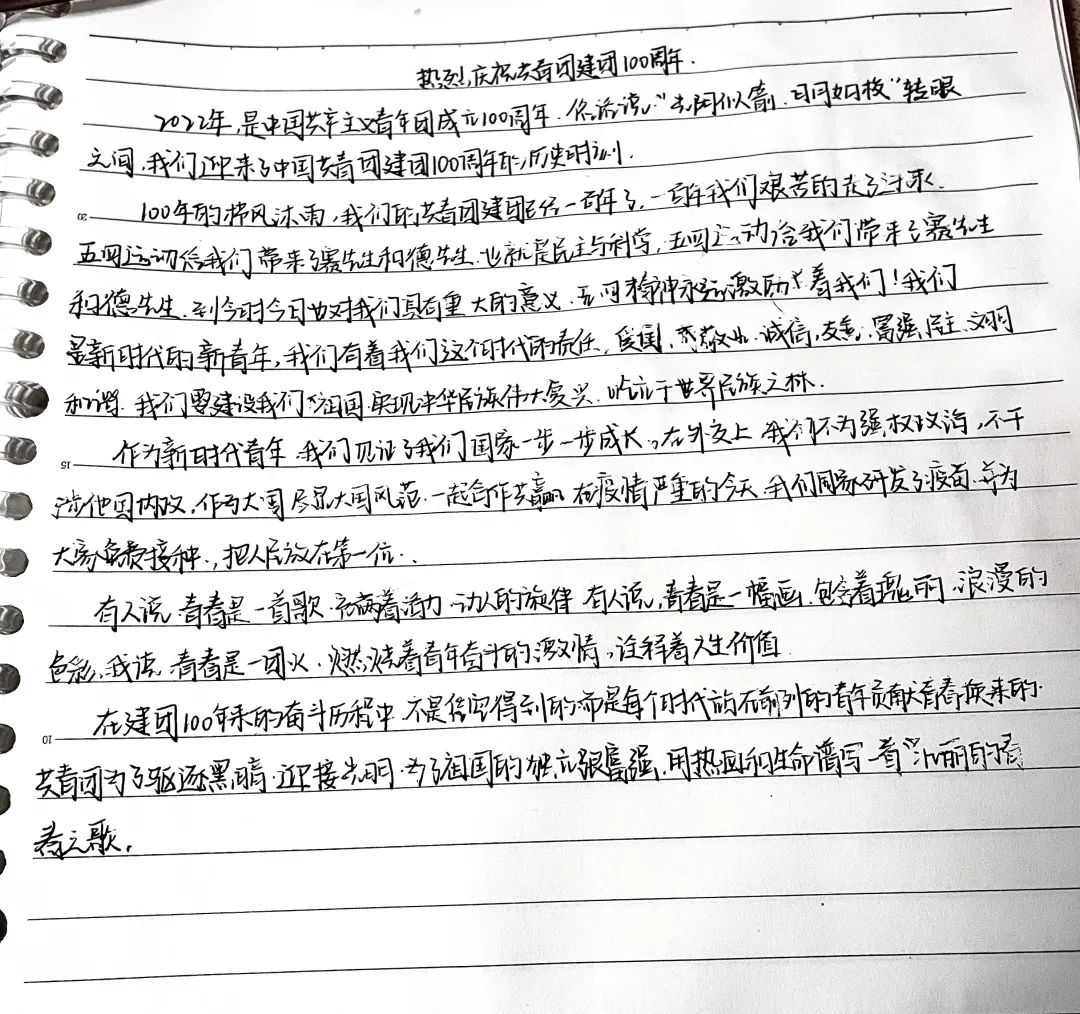 热烈庆祝共青团建团100周年.
2022年,是中国共产主义青年团成立100周年.俗话说:"光阴似箭.日月如梭"转眼
之间,我们迎来了中国共青团建团100周年的历史时刻.
20
100年的栉风沐雨,我们的共青团建团已经一百年了.一百年我们艰苦的走了过来.
五四运动给我们带来了赛先生和德先生.也就是民主与科学,五四运动给我们带来了赛先生
和德先生.到今时今日也对我们具有重大的意义.五四精神永远激励着我们!我们
是新时代的新青年,我们有着我们这个时代的责任,爱国,敬业.诚信,友善.富强民主.文明
和谐.我们要建设我们祖国实现中华民族伟大复兴.屹立于世界民族之林.
15
作为新时代青年.我们见证了我们国家一步一步成长,在外交上我们不为强权政治,不干
涉他国内政,作为大国尽显大国风范.一起合作共赢.在疫情严重的今天.我们国家研发了疫苗.并为
大家免费接种.,把人民放在第一位.
有人说,青春是一首歌.充满着活力动人的旋律.有人说,青春是一幅画.包含着瑰丽.浪漫的
色彩,我说.青春是一团火.燃烧着青年奋斗的激情,诠释着人生价值
10
在建团100年来的奋斗历程中不是凭空得到的而是每个时代站在前列的青年贡献青春换来的.
共青团为了驱逐黑暗.迎接光明.为了祖国的独立富强,用热血和生命谱写一首壮丽的青
春之歌.